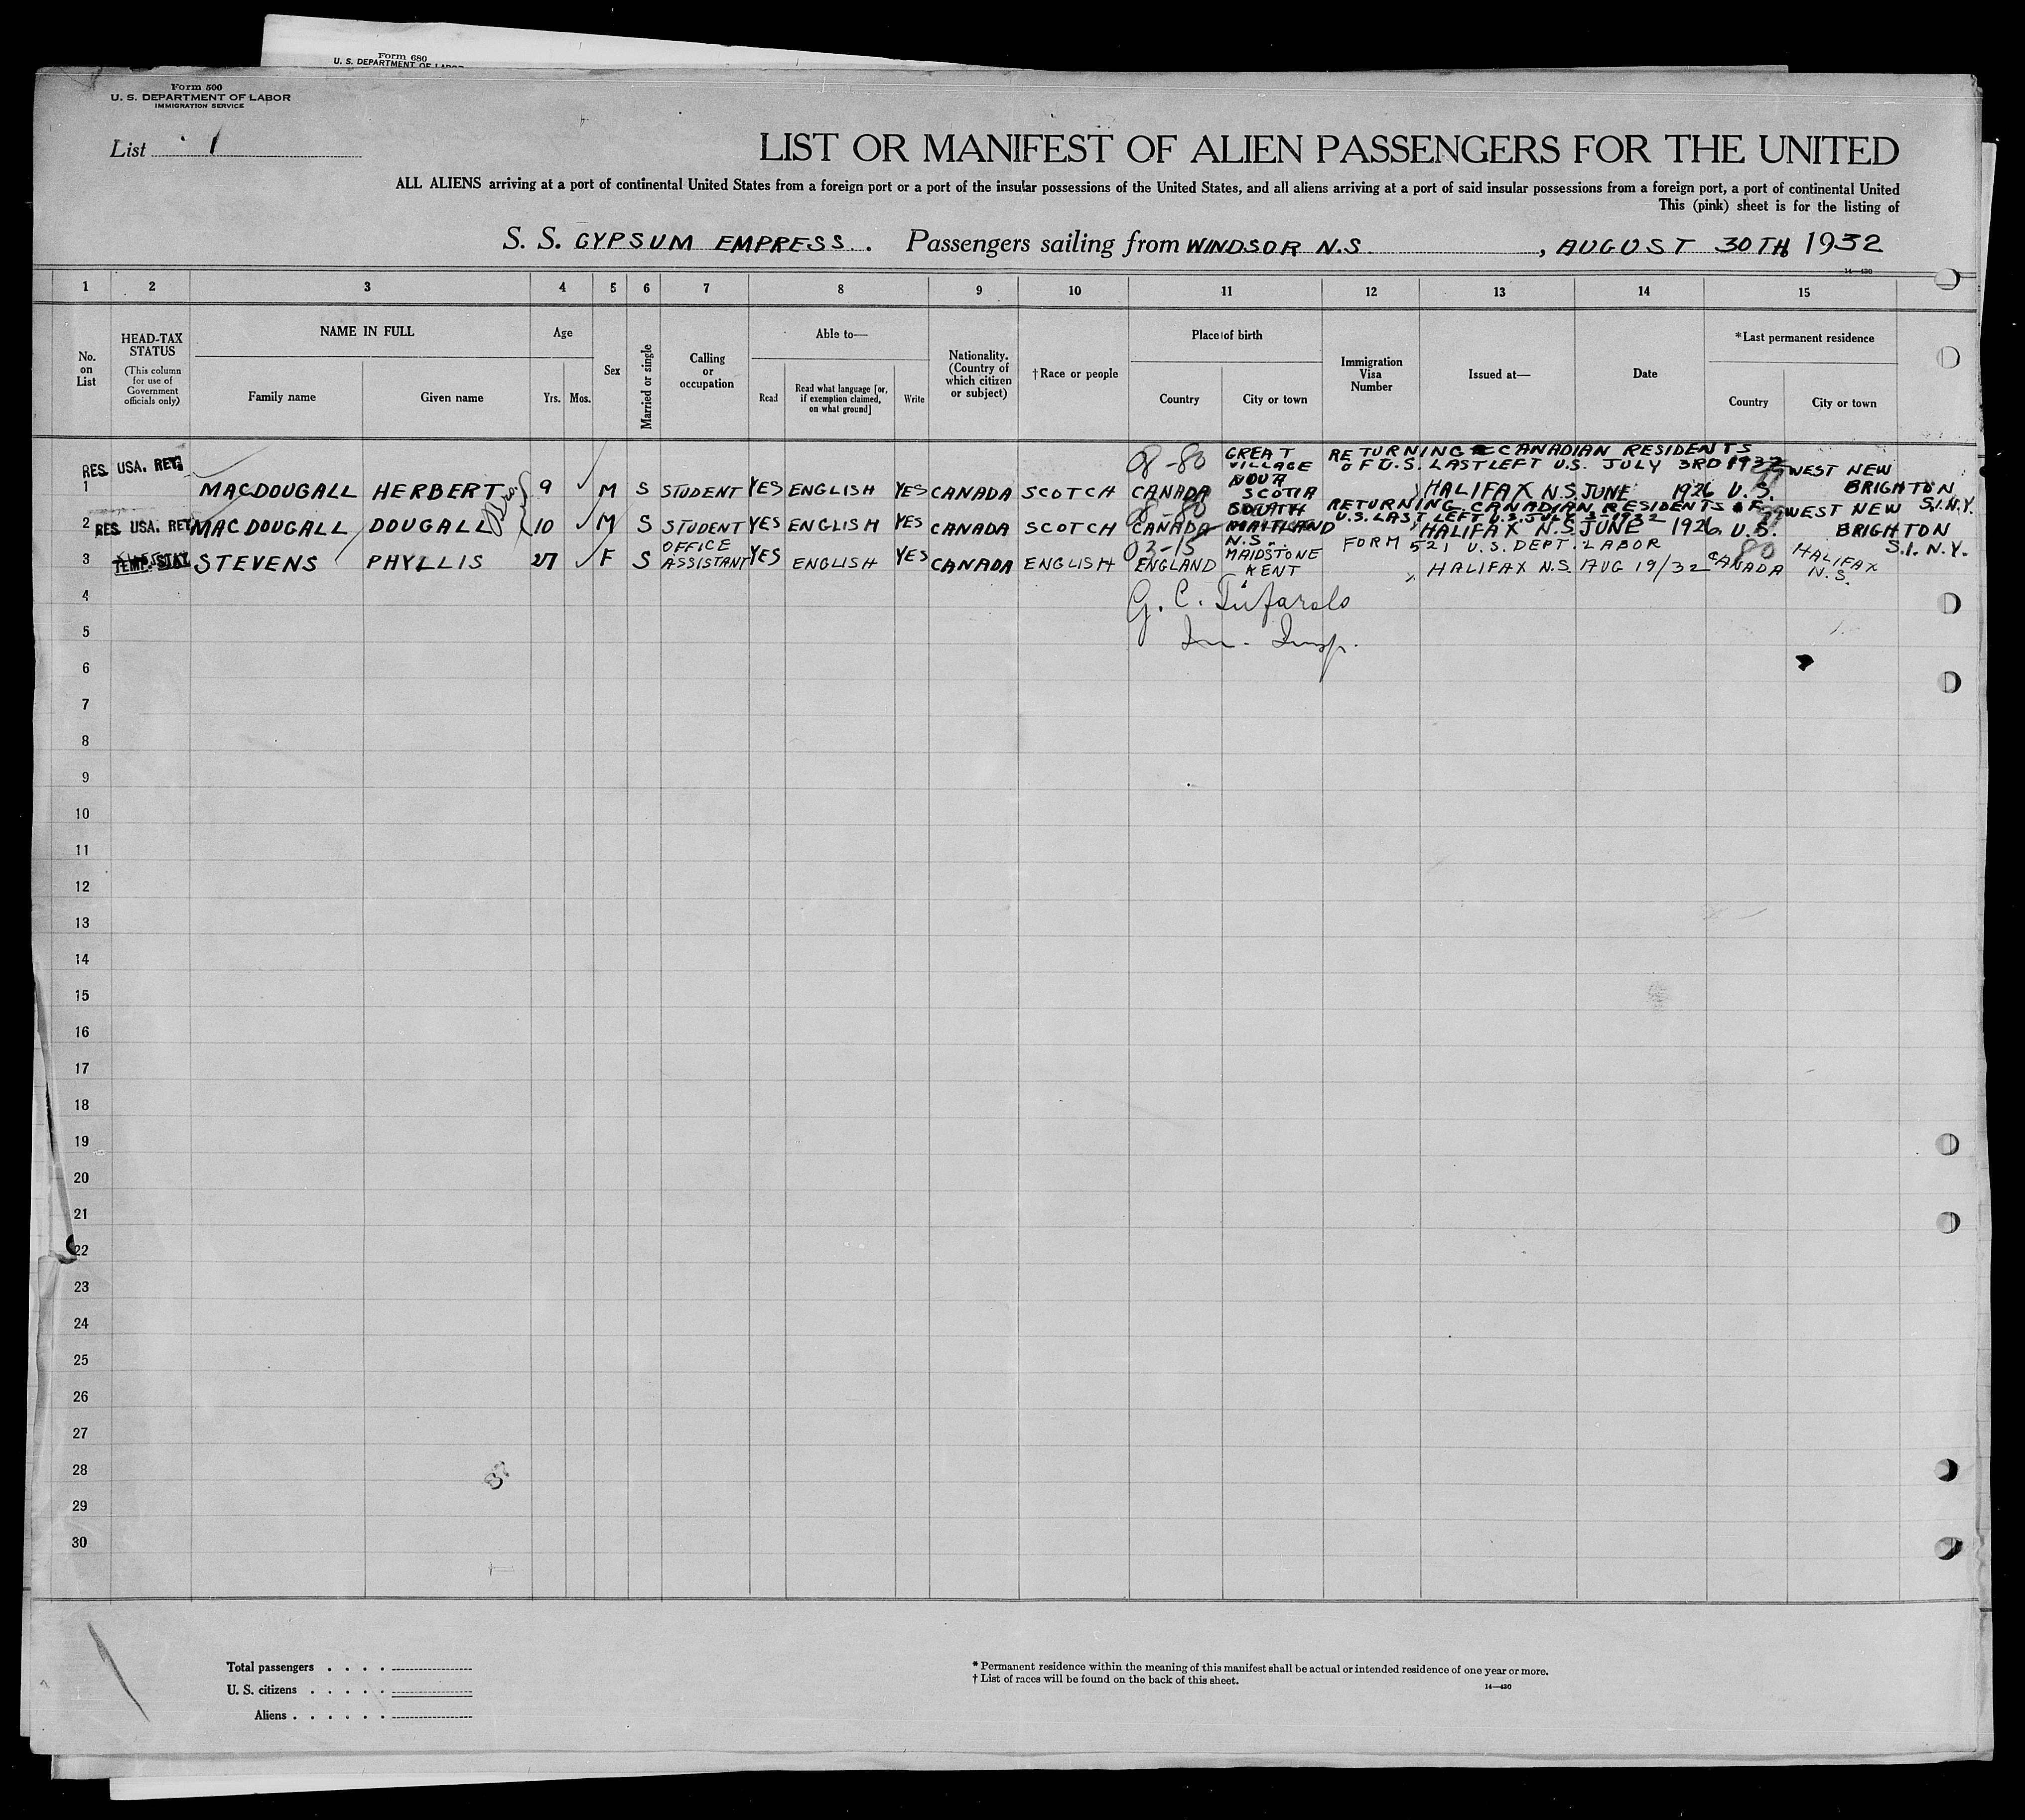 Form 680
U. S. DEPARTMENT OF LABOR
Form 500
U. S. DEPARTMENT OF LABOR
IMMIGRATION SERVICE
List 1
LIST OR MANIFEST OF ALIEN PASSENGERS FOR THE UNITED
ALL ALIENS arriving at a port of continental United States from a foreign port or a port of the insular possessions of the United States, and all aliens arriving at a port of said insular possessions from a foreign port, a port of continental United
This (pink) sheet is for the listing of
S. S. GYPSUM EMPRESS. Passengers sailing from WINDSOR N.S., AUGUST 30TH 1932
14—430
1 2 3 4 5 6 7 8 9 10 11 12 13 14 15
No. on List
HEAD-TAX STATUS
(This column for use of Government officials only)
NAME IN FULL
Family name Given name
Age
Yrs. Mos.
Sex
Married or single
Calling or occupation
Able to—
Read
Read what language [or, if exemption claimed, on what ground]
Write
Nationality. (Country of which citizen or subject)
†Race or people
Place of birth
Country City or town
Immigration Visa Number
Issued at—
Date
*Last permanent residence
Country City or town
08-80 GREAT VILLAGE NOVA SCOTIA
RETURNING CANADIAN RESIDENTS
OF U.S. LAST LEFT U.S. JULY 3RD 1932
RES. USA. RET.
1 MACDOUGALL HERBERT Bro. 9 M S STUDENT YES ENGLISH YES CANADA SCOTCH CANADA HALIFAX N.S. JUNE 1926 U.S. WEST NEW BRIGHTON S.I.N.Y.
08-80 SOUTH MAITLAND N.S.
RETURNING CANADIAN RESIDENTS OF
U.S. LAST LEFT U.S. JULY 3 - 1932
2 RES. USA. RET. MACDOUGALL DOUGALL 10 M S STUDENT YES ENGLISH YES CANADA SCOTCH CANADA HALIFAX N.S. JUNE 1926 U.S. WEST NEW BRIGHTON S.I. N.Y.
03-15 FORM 521 U.S. DEPT. LABOR 80
3 TEMP. STAY STEVENS PHYLLIS 27 F S OFFICE ASSISTANT YES ENGLISH YES CANADA ENGLISH ENGLAND MAIDSTONE KENT HALIFAX N.S. AUG 19/32 CANADA HALIFAX N.S.
4
5
Im. Insp.
6
7
8
9
10
11
12
13
14
15
16
17
18
19
20
21
22
23
24
25
26
27
28
29
30
Total passengers . . . .
U. S. citizens . . . . .
Aliens . . . . . .
* Permanent residence within the meaning of this manifest shall be actual or intended residence of one year or more.
† List of races will be found on the back of this sheet.
14—430